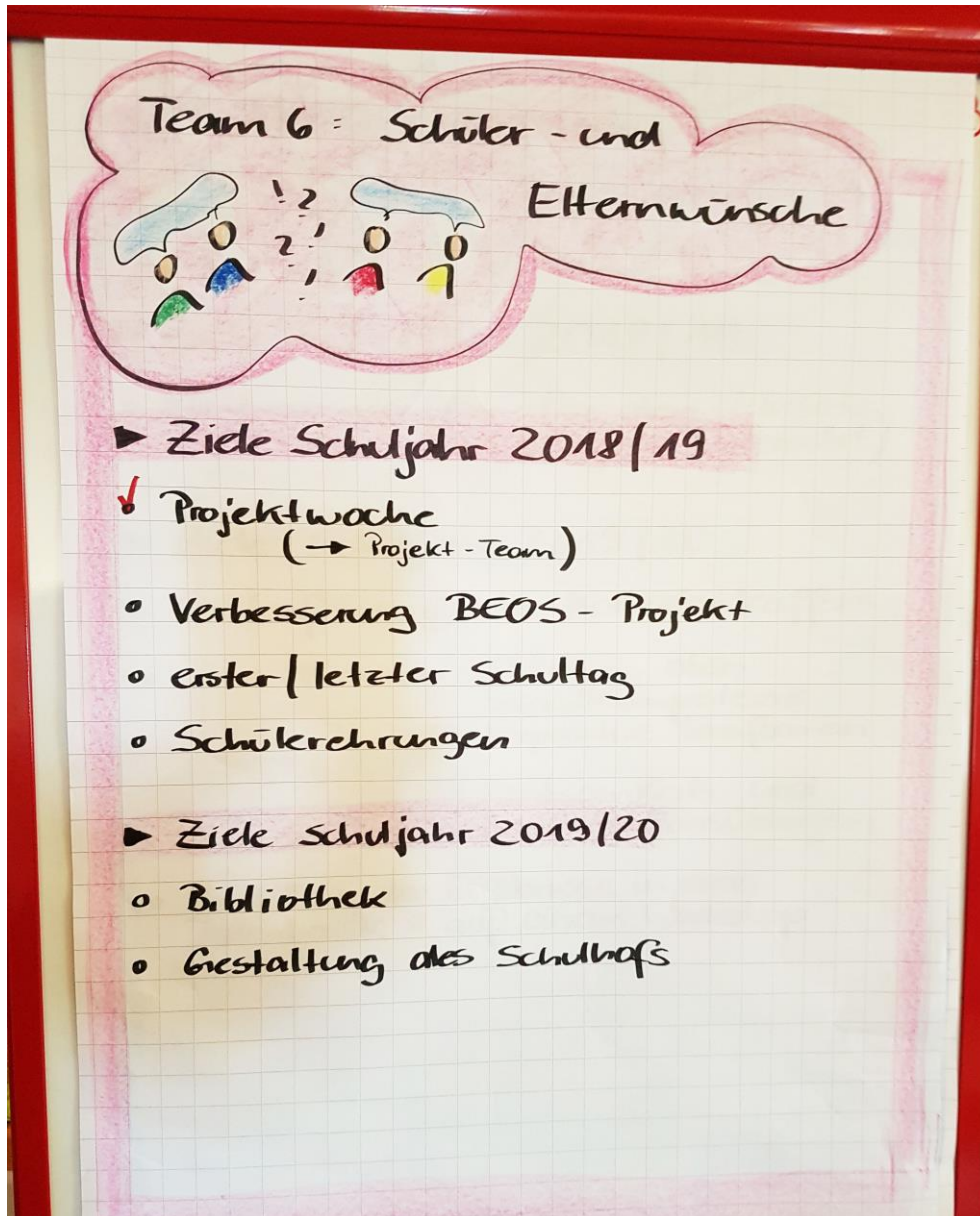 Team 6: Schüler- und
Elternwünsche
! ?
? !
!
► Ziele Schuljahr 2018/19
Projektwoche
(→ Projekt-Team)
• Verbesserung BEOS-Projekt
• erster/letzter Schultag
• Schülerehrungen
► Ziele Schuljahr 2019/20
• Bibliothek
• Gestaltung des Schulhofs